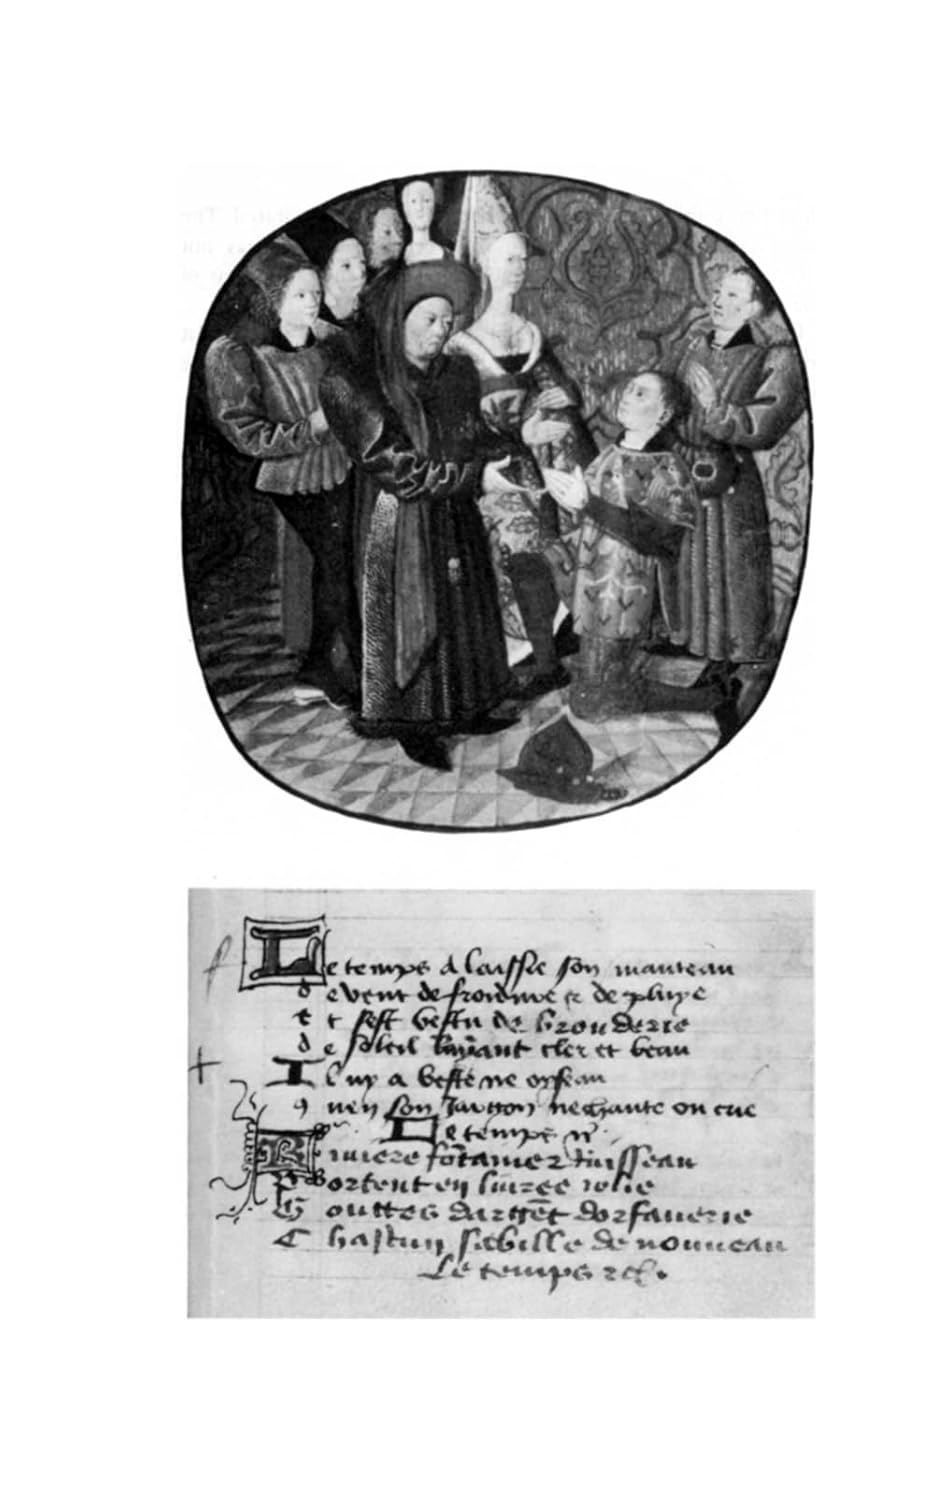 Le temps a laissie son manteau
de vent de froidure & de pluye
et sest vestu de brouderie
de soleil luyant cler et beau
Il ny a beste ne oyseau
quen son Jargon ne chante ou crie
Le temps &c
Riuiere fōtaine & ruisseau
Portent en liuree iolie
Gouttes dargēt dorfauerie
Chascun sabille de nouueau
Le temps &c.